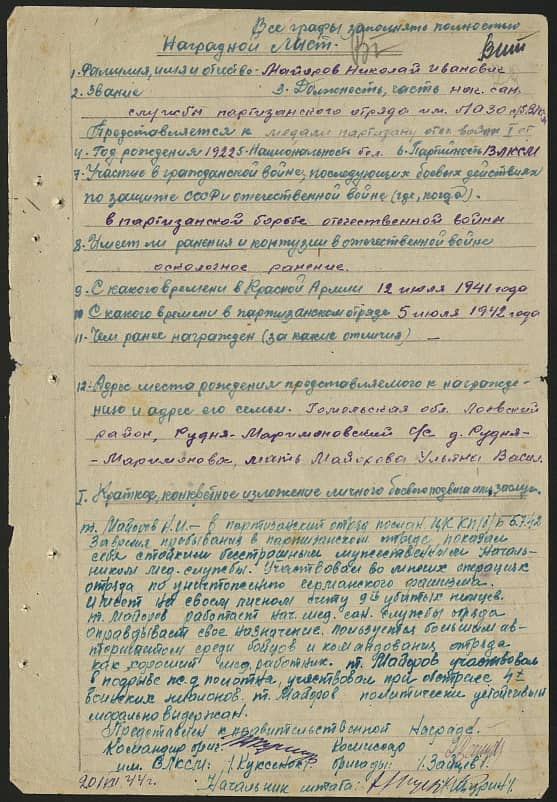 Все графы заполнять полностью
Наградной лист.
1. Фамилия, имя и отчество- Майоров Николай Иванович
2. Звание 3. Должность, часть нач. сан.
службы партизанского отряда им. Лазо
Представляется к медали партизану отеч войны I ст
4. Год рождения 1922 5. Национальность бел. 6. Партийность ВЛКСМ
7. Участие в гражданской войне, последующих боевых действиях
по защите СССР и отечественной войне (где, когда).
в партизанской борьбе отечественной войны
8. Имеет ли ранения и контузии в отечественной войне
осколочное ранение.
9. С какого времени в Красной Армии 12 июля 1941 года
10 С какого времени в партизанском отряде 5 июля 1942 года
11. Чем ранее награжден (за какие отличия) —
12. Адрес места рождения представляемого к награжде-
нию и адрес его семьи. Гомельская обл. Лоевский
район, Рудня-Маримоновский с/с д. Рудня-
-Маримоновка, мать Майорова Ульяна Васил.
I. Краткое, конкретное изложение личного боевого подвига или заслуг.
т. Майоров Н.И.- в партизанский отряд послан ЦК КП/б/Б 5.7.42
За время пребывания в партизанском отряде, показал
себя стойким бесстрашным мужественным началь-
ником мед. службы. Участвовал во многих операциях
отряда по уничтожению германского фашизма.
Имеет на своем личном счету убитых немцев.
т. Майоров работает нач. мед. сан. службы отряда
оправдывает свое назначение. пользуется большим ав-
торитетом среди бойцов и командования отряда
как хороший мед. работник. т. Майоров участвовал
в подрыве ж.д полотна, участвовал при обстреле 4х
воинских эшелонов. т. Майоров политически устойчивый
морально выдержан.
Представлен к правительственной награде.-
Командир бриг. Комиссар
им. ВЛКСМ: бригады:
44 г. Начальник штаба: